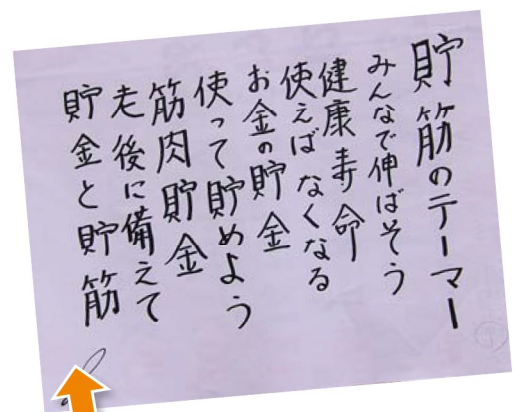 貯筋のテーマー
みんなで伸ばそう
健康寿命
使えばなくなる
お金の貯金
使って貯めよう
筋肉貯金
老後に備えて
貯金と貯筋